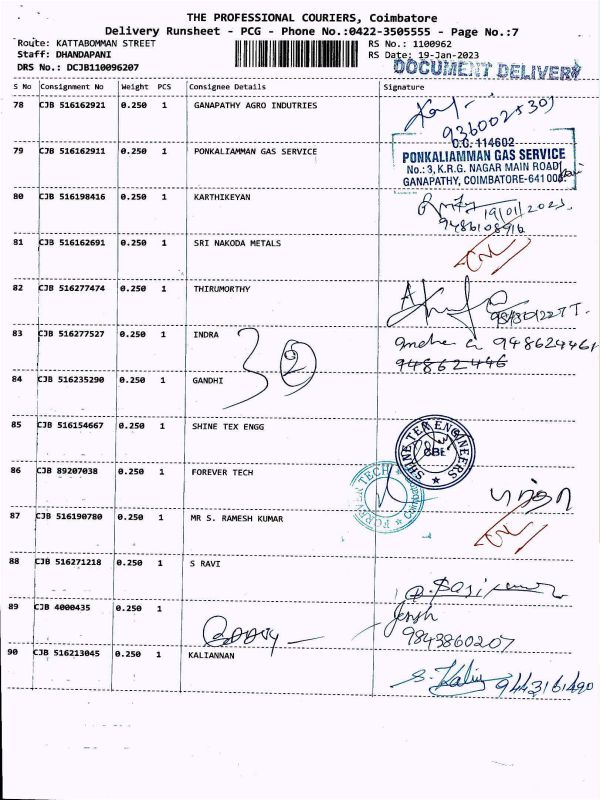 THE PROFESSIONAL COURIERS, Coimbatore
Delivery Runsheet - PCG - Phone No.:0422-3505555 - Page No.:7
Route: KATTABOMMAN STREET RS No.: 1100962
Staff: DHANDAPANI RS Date: 19-Jan-2023
DRS No.: DCJB110096207 DOCUMENT DELIVERY
S No Consignment No Weight PCS Consignee Details Signature
78 CJB 516162921 0.250 1 GANAPATHY AGRO INDUTRIES
9360025301
79 CJB 516162911 0.250 1 PONKALIAMMAN GAS SERVICE
C.C. 114602
PONKALIAMMAN GAS SERVICE
No.: 3, K.R.G. NAGAR MAIN ROAD
GANAPATHY, COIMBATORE-641 006.
80 CJB 516198416 0.250 1 KARTHIKEYAN
19/01/2023.
9486108916
81 CJB 516162691 0.250 1 SRI NAKODA METALS
82 CJB 516277474 0.250 1 THIRUMORTHY
83 CJB 516277527 0.250 1 INDRA
948624461
94862446
84 CJB 516235290 0.250 1 GANDHI
85 CJB 516154667 0.250 1 SHINE TEX ENGG
SHINE TEX ENGINEERS
CBE
86 CJB 89207038 0.250 1 FOREVER TECH
FOREVER TECH
Coimbatore
87 CJB 516190780 0.250 1 MR S. RAMESH KUMAR
88 CJB 516271218 0.250 1 S RAVI
89 CJB 4000435 0.250 1
9843860207
90 CJB 516213045 0.250 1 KALIANNAN
9443161490